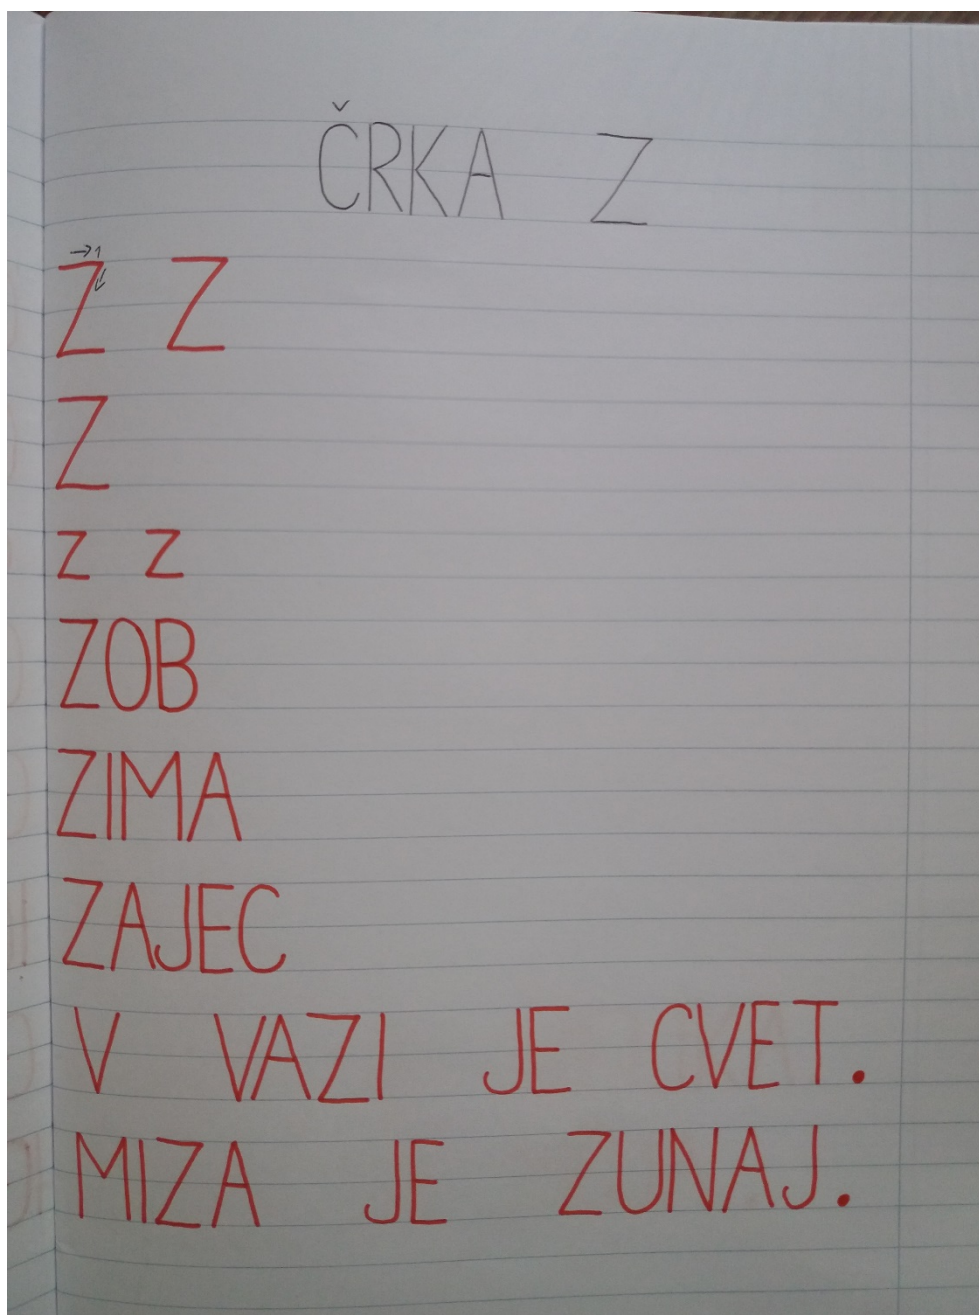 ČRKA Z
Z Z
Z
z z
ZOB
ZIMA
ZAJEC
V VAZI JE CVET.
MIZA JE ZUNAJ.